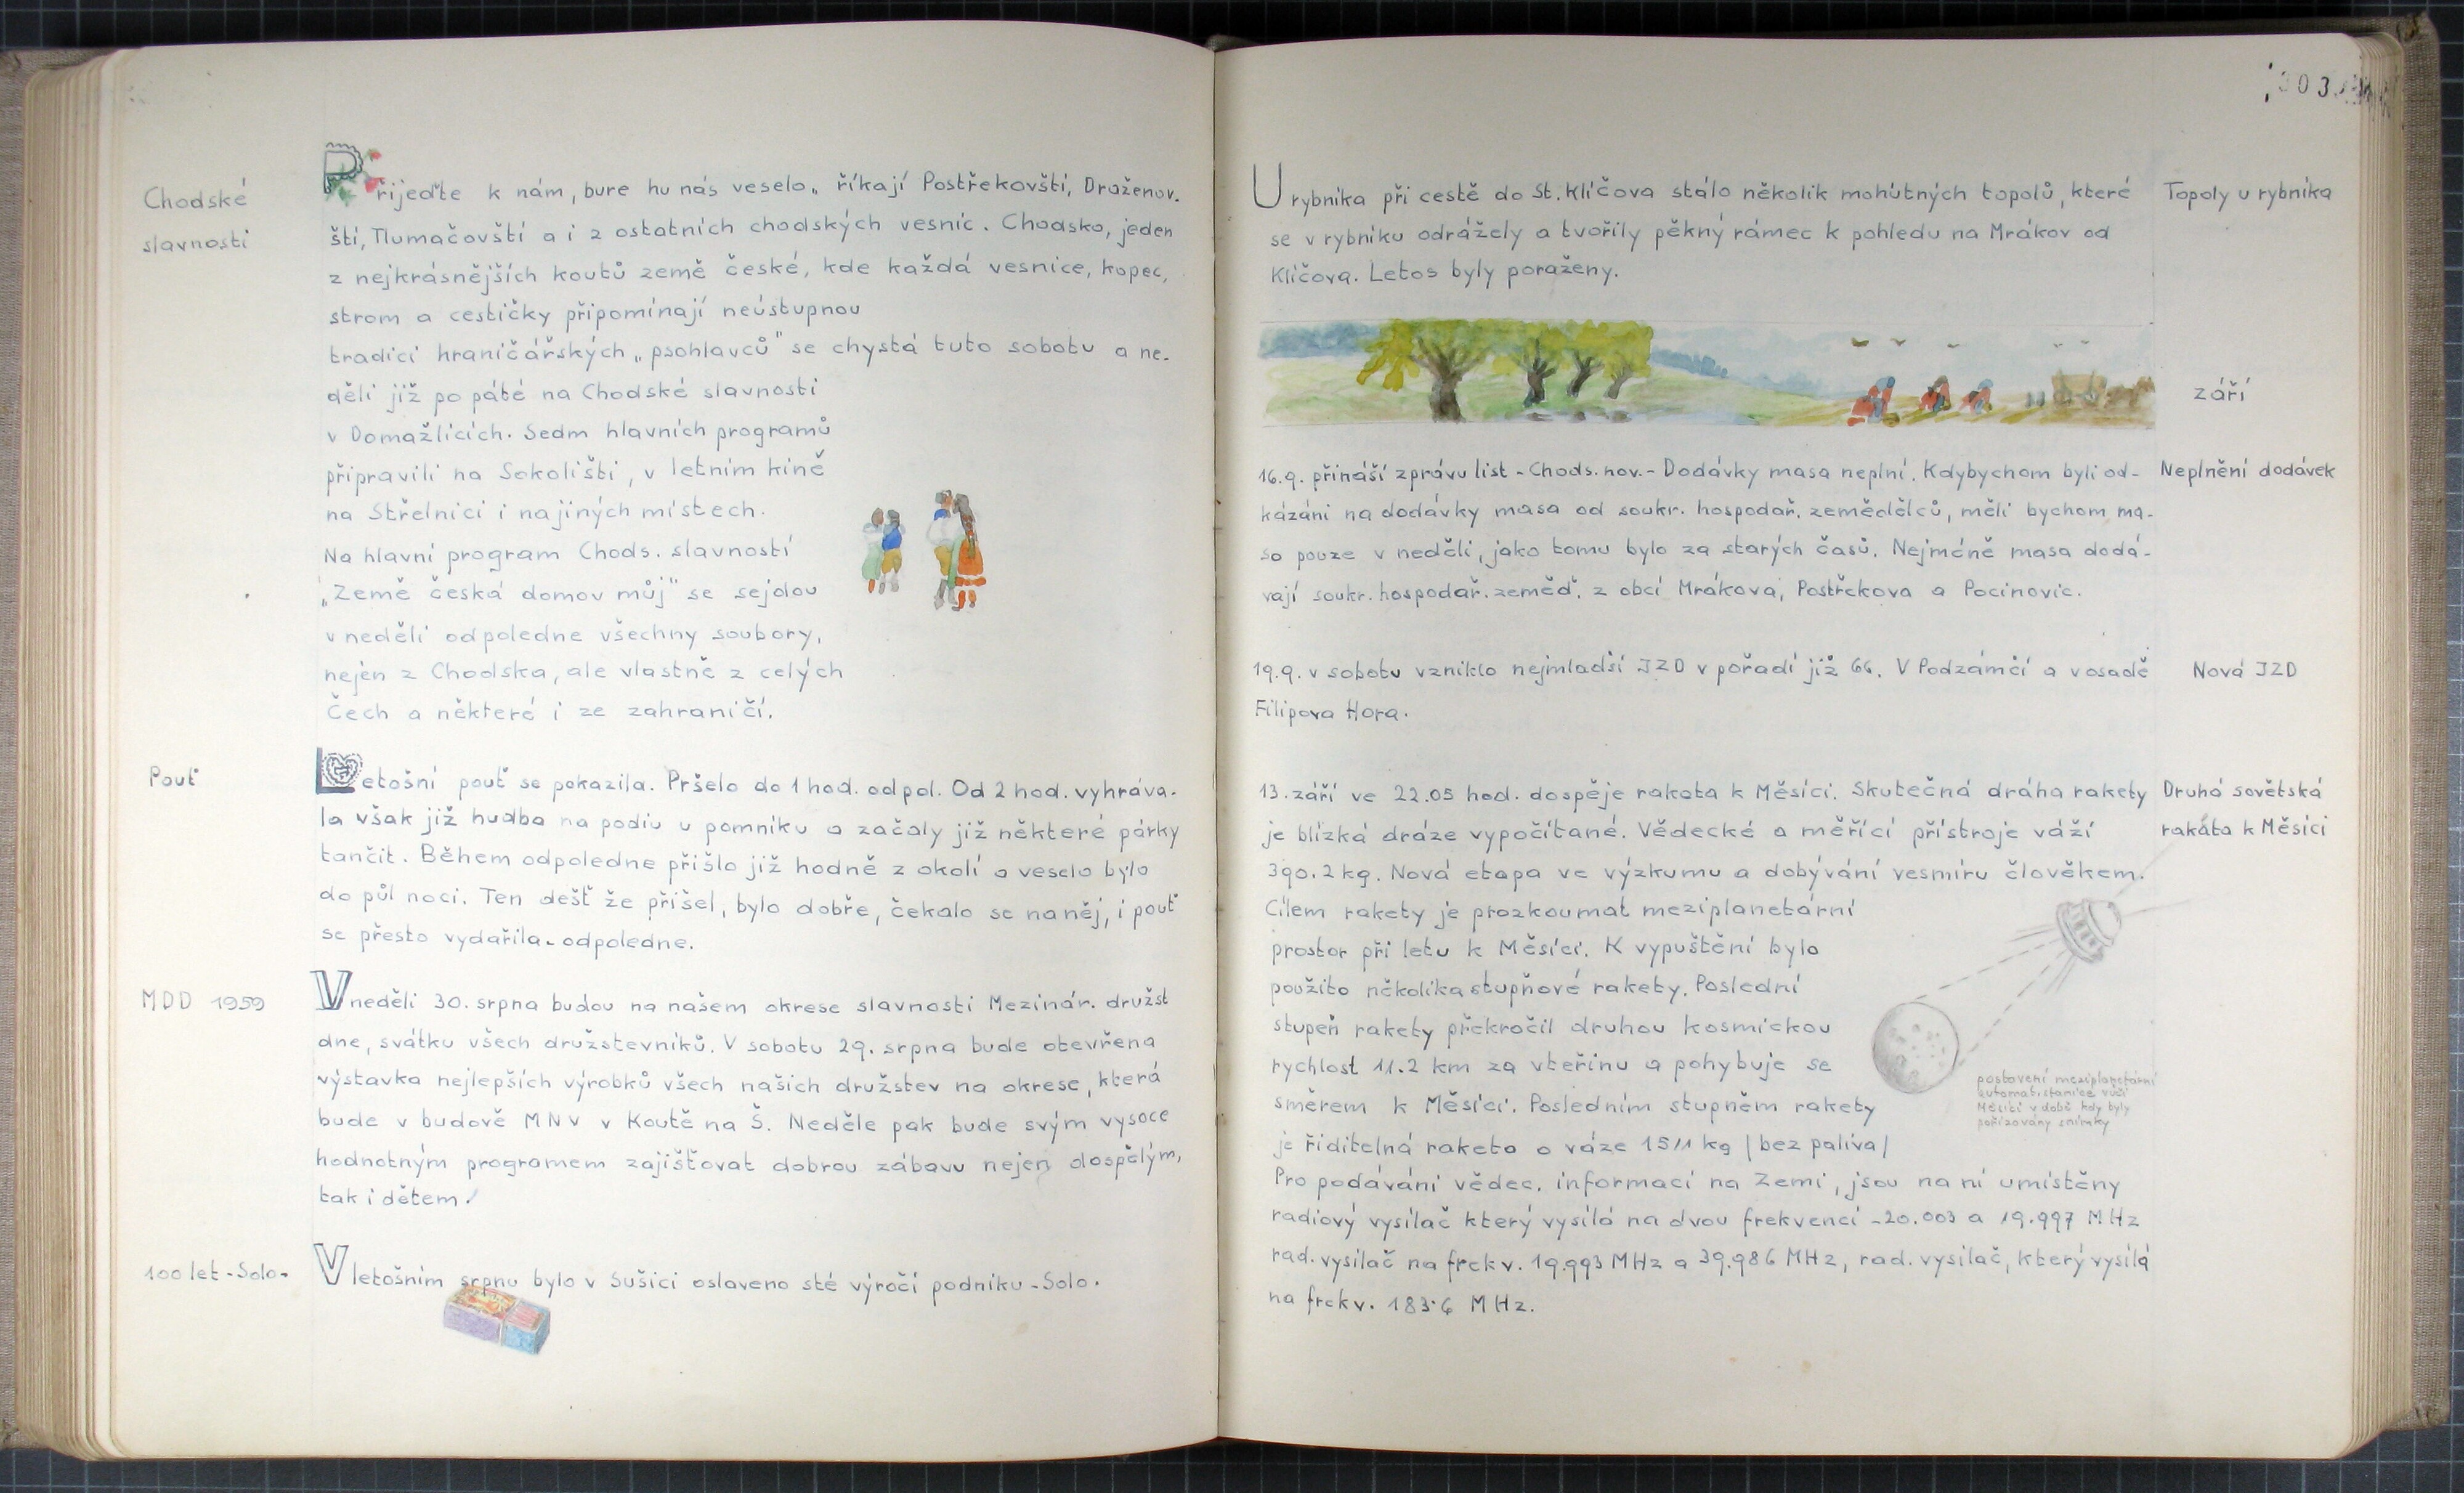 Chodské
slavnosti
Přijeďte k nám, bure hu nás veselo„ říkají Postřekovští, Draženov.
ští, Tlumačovští a i z ostatních chodských vesnic. Chodsko, jeden
z nejkrásnějších koutů země české, kde každá vesnice, kopec,
strom a cestičky připomínají neústupnou
tradici hraničářských „psohlavců" se chystá tuto sobotu a ne-
děli již po páté na Chodské slavnosti
v Domažlicích. Sedm hlavních programů
připravili na Sokolišti, v letním kině
na Střelnici i na jiných místech.
Na hlavní program Chods. slavností
„Země česká domov můj" se sejdou
v neděli odpoledne všechny soubory,
nejen z Chodska, ale vlastně z celých
Čech a některé i ze zahraničí.
Pouť
Letošní pouť se pokazila. Pršelo do 1 hod. odpol. Od 2 hod. vyhráva-
la však již hudba na podiu u pomníku a začaly již některé párky
tančit. Během odpoledne přišlo již hodně z okolí a veselo bylo
do půl noci. Ten dešť že přišel, bylo dobře, čekalo se na něj, i pouť
se přesto vydařila-odpoledne.
MDD 1959
V neděli 30. srpna budou na našem okrese slavnosti Mezinár. družst
dne, svátku všech družstevníků. V sobotu 29. srpna bude otevřena
výstavka nejlepších výrobků všech našich družstev na okrese, která
bude v budově MNV v Koutě na Š. Neděle pak bude svým vysoce
hodnotným programem zajišťovat dobrou zábavu nejen dospělým,
tak i dětem.
100 let -Solo-
V letošním srpnu bylo v Sušici oslaveno sté výročí podniku -Solo.
303
U rybníka při cestě do St. Klíčova stálo několik mohútných topolů, které
se v rybníku odrážely a tvořily pěkný rámec k pohledu na Mrákov od
Klíčova. Letos byly poraženy.
Topoly u rybníka
září
16.9. přináší zprávu list - Chods. nov.- Dodávky masa neplní. Kdybychom byli od-
kázáni na dodávky masa od soukr. hospodař. zemědělců, měli bychom ma-
so pouze v neděli, jako tomu bylo za starých časů. Nejméně masa dodá-
vají soukr. hospodař. zeměď. z obcí Mrákova, Postřekova a Pocinovic.
Neplnění dodávek
19.9. v sobotu vzniklo nejmladší JZD v pořadí již 66. V Podzámčí a v osadě
Filipova Hora.
Nová JZD
13. září ve 22.05 hod. dospěje raketa k Měsíci. Skutečná dráha rakety
je blízká dráze vypočítané. Vědecké a měřící přístroje váží
390.2 kg. Nová etapa ve výzkumu a dobývání vesmíru člověkem.
Cílem rakety je prozkoumat meziplanetární
prostor při letu k Měsíci. K vypuštění bylo
použito několikastupňové rakety. Poslední
stupeň rakety překročil druhou kosmickou
rychlost 11.2 km za vteřinu a pohybuje se
směrem k Měsíci. Posledním stupněm rakety
je řiditelná raketa o váze 1511 kg /bez paliva/
Pro podávání vědec. informací na Zemi, jsou na ní umístěny
radiový vysílač který vysílá na dvou frekvencí -20.003 a 19.997 MHz
rad. vysílač na frekv. 19.993 MHz a 39.986 MHz, rad. vysílač, který vysílá
na frekv. 183.6 MHz.
Druhá sovětská
rakáta k Měsíci
postavení meziplanetární
automat. stanice vůči
Měsíci v době kdy byly
pořizovány snímky